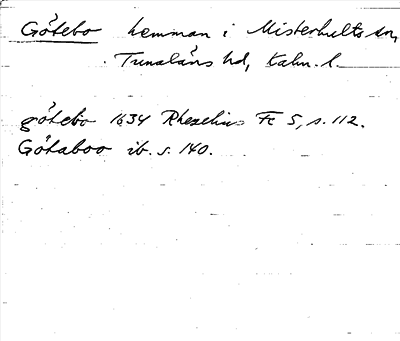 Götebo hemman i Misterhults sn,
Tunaläns hd, Kalm. l.
götebo 1634 Rhezelius Fc 5, s. 112.
Götaboo ib. s. 140.